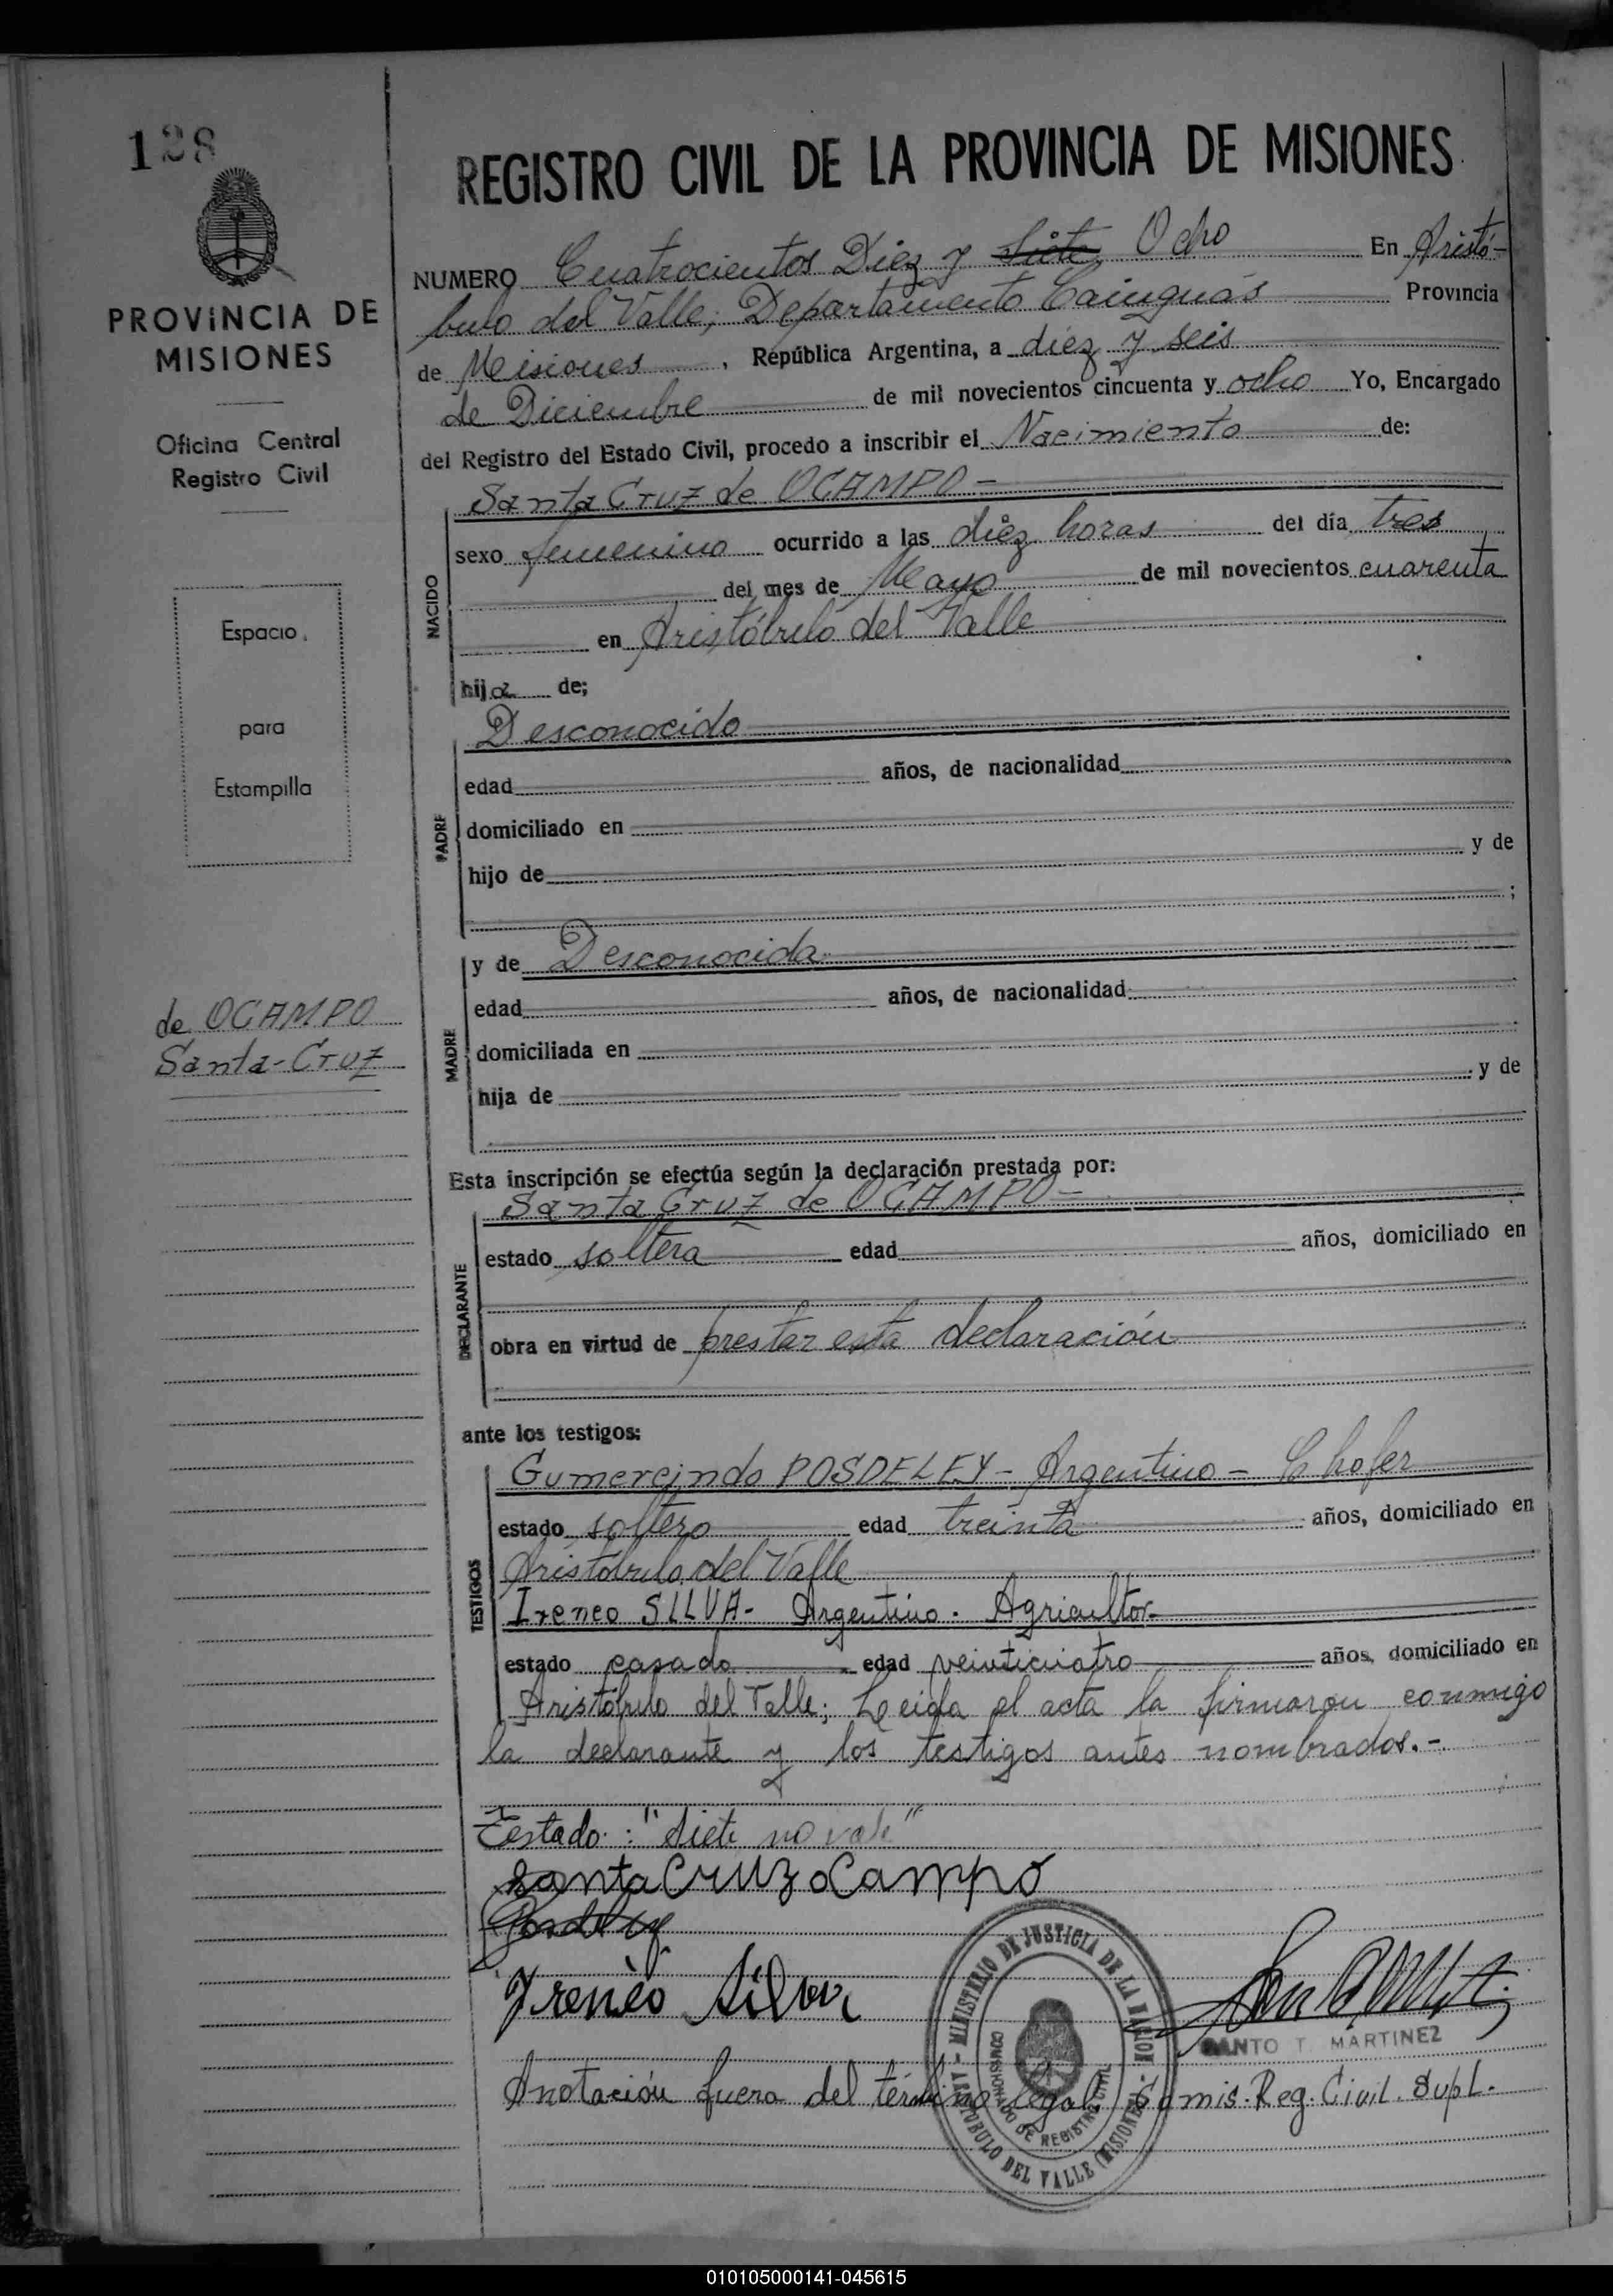 128
PROVINCIA DE
MISIONES
Oficina Central
Registro Civil
Espacio
para
Estampilla
de OCAMPO
Santa-Cruz
REGISTRO CIVIL DE LA PROVINCIA DE MISIONES
NUMERO Cuatrocientos Diez y Siete Ocho En Aristó-
bulo del Valle, Departamento Cainguás Provincia
de Misiones, República Argentina, a diez y seis
de Diciembre de mil novecientos cincuenta y ocho Yo, Encargado
del Registro del Estado Civil, procedo a inscribir el Nacimiento de:
Santa Cruz de OCAMPO -
NACIDO
sexo femenino ocurrido a las diez horas del día tres
del mes de Mayo de mil novecientos cuarenta
en Aristóbulo del Valle
hija de;
Desconocido
PADRE
edad años, de nacionalidad
domiciliado en
hijo de y de
;
y de Desconocida
MADRE
edad años, de nacionalidad
domiciliada en
hija de y de
Esta inscripción se efectúa según la declaración prestada por:
Santa Cruz de OCAMPO -
DECLARANTE
estado soltera edad años, domiciliado en
obra en virtud de prestar esta declaración
ante los testigos:
Gumercindo POSDELEY - Argentino - Chofer
TESTIGOS
estado soltero edad treinta años, domiciliado en
Aristóbulo del Valle
Ireneo SILVA - Argentino - Agricultor -
estado casado edad veinticuatro años, domiciliado en
Aristóbulo del Valle; Leida el acta la firmaron conmigo
la declarante y los testigos antes nombrados. -
Testado: "Siete no vale"
Santa Cruz ocampo
Posdeley
Ireneo Silva
MINISTERIO DE JUSTICIA DE LA NACION
COMISIONADO DE REGISTRO CIVIL
ARISTOBULO DEL VALLE (MISIONES)
SANTO T. MARTINEZ
Anotación fuera del término legal Comis. Reg. Civil. Supl.
010105000141-045615